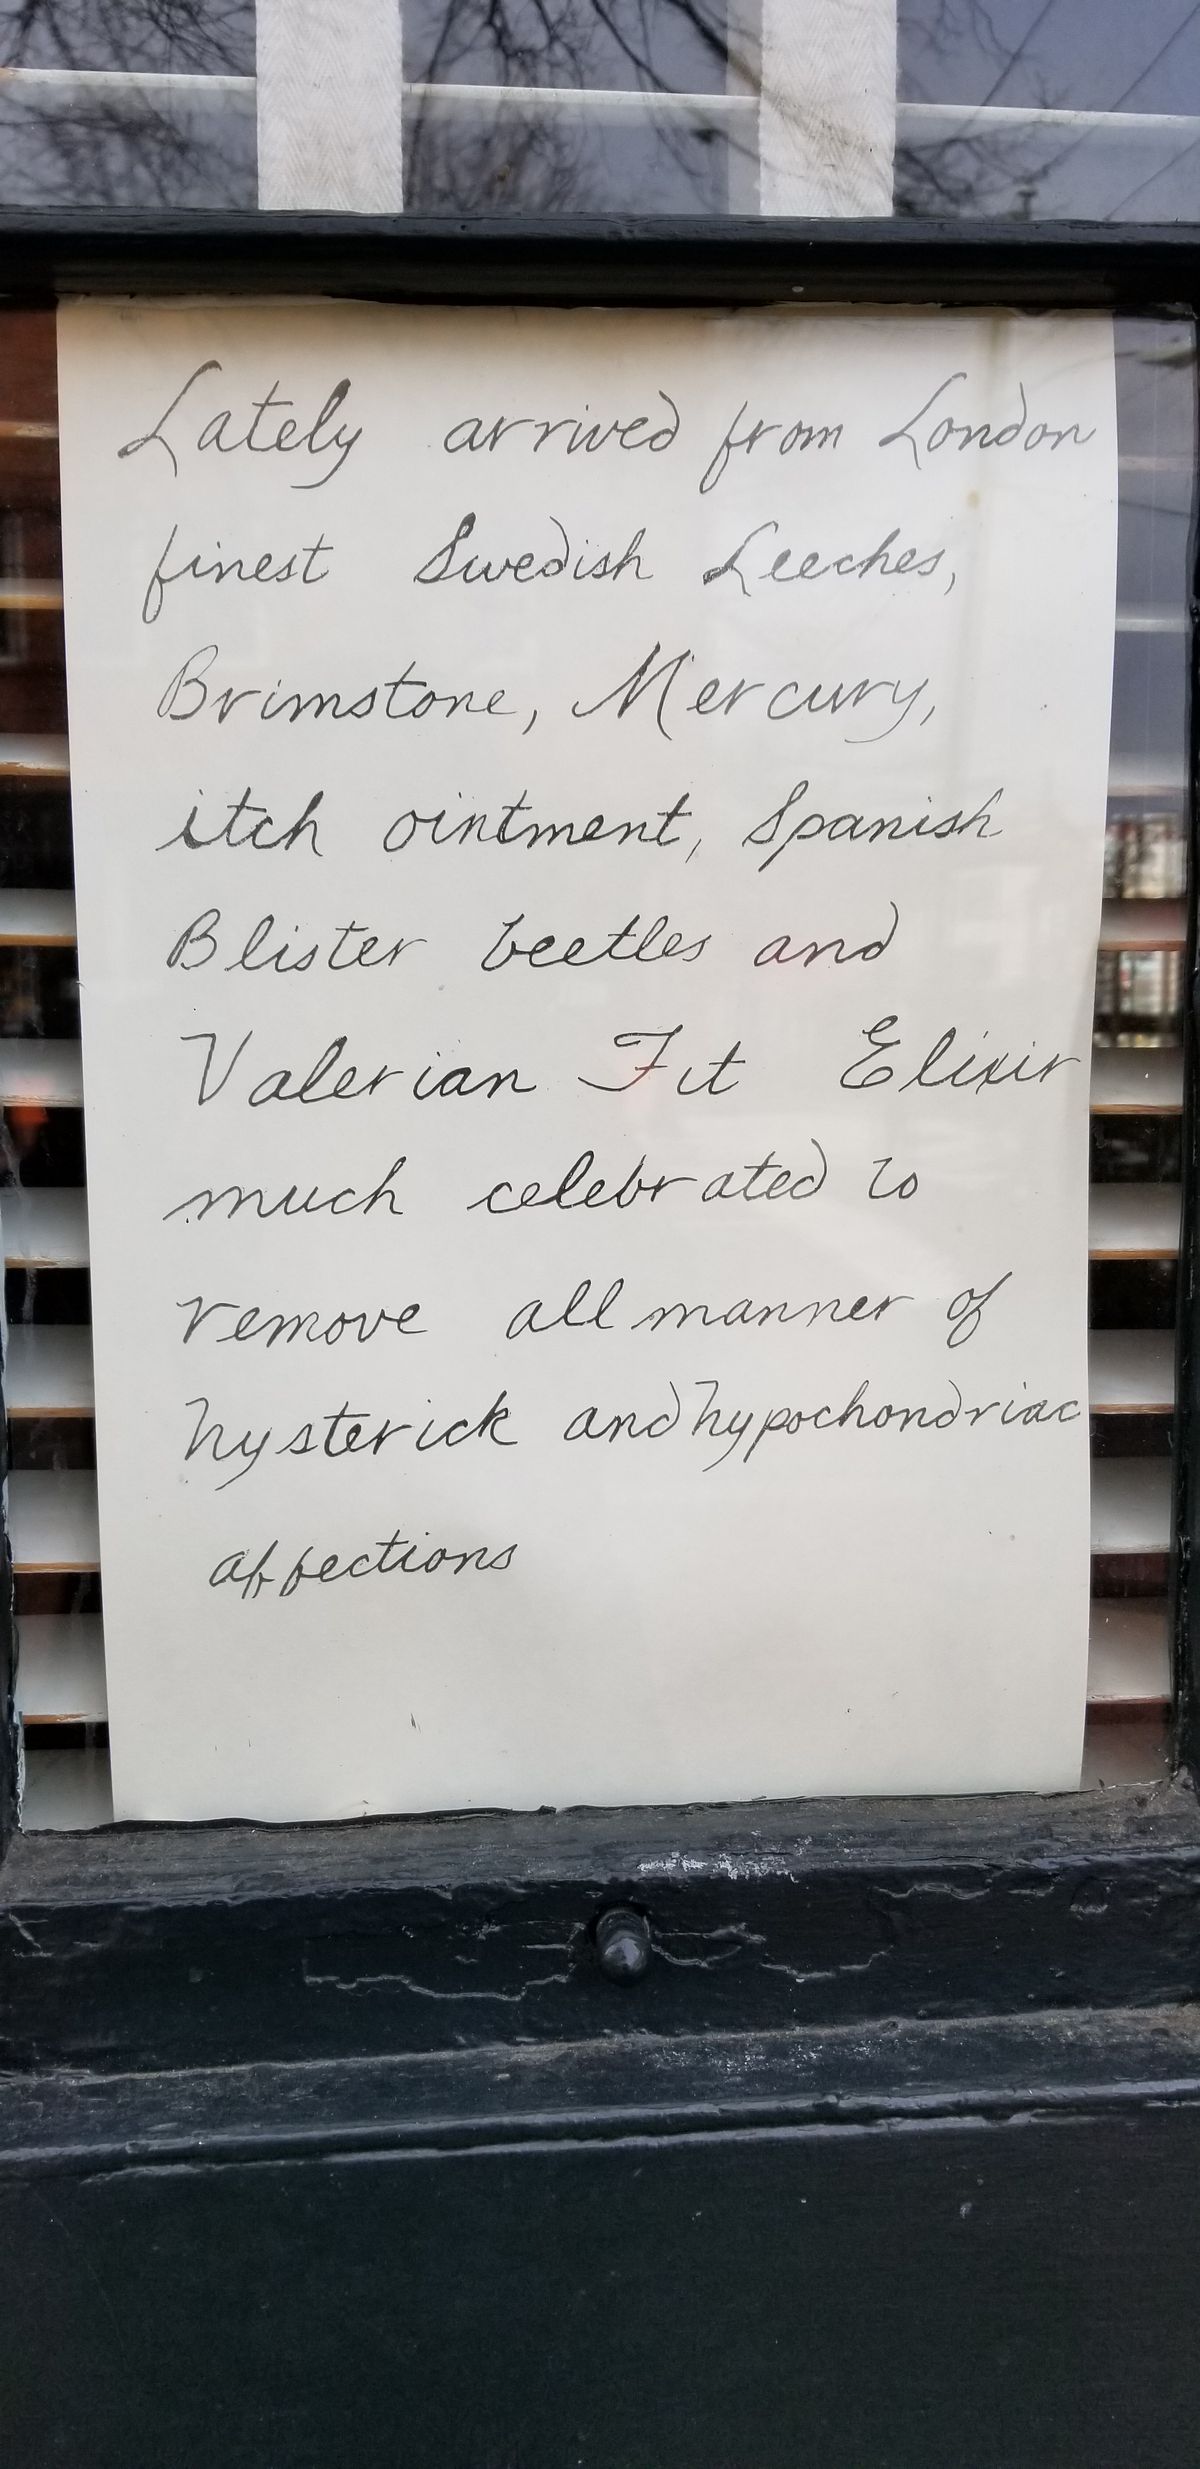 Lately arrived from London
finest Swedish Leeches,
Brimstone, Mercury,
itch ointment, Spanish
Blister beetles and
Valerian Fit Elixir
much celebrated to
remove all manner of
hysterick and hypochondriac
affections